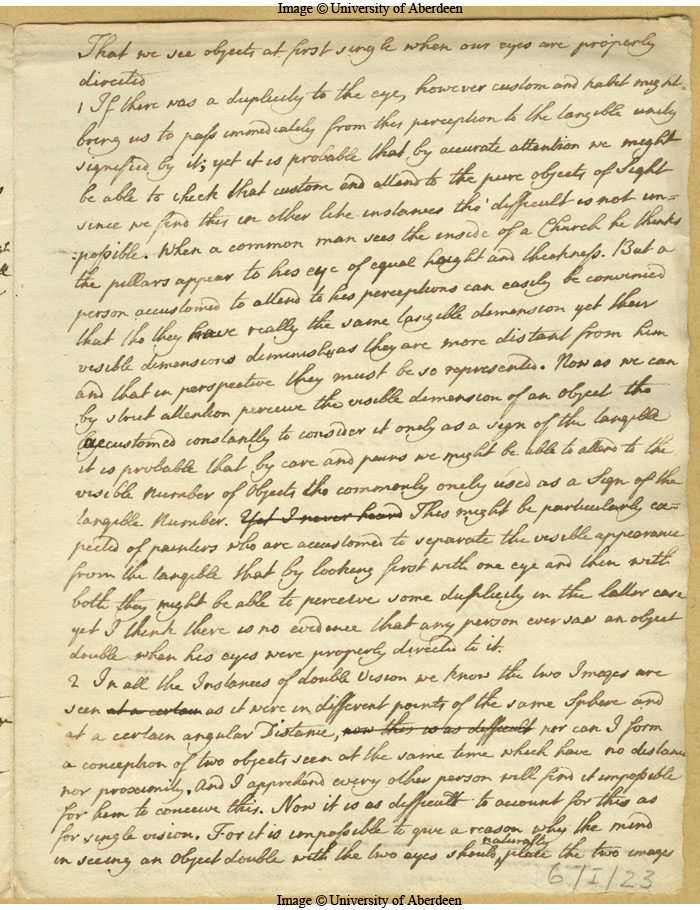 Image © University of Aberdeen
That we see objects at first single when our eyes are properly
directed
1 If there was a duplicity to the eye, however custom and habit might
bring us to pass immediately from this perception to the tangible unity
signified by it; yet it is probable that by accurate attention we might
be able to check that custom and attend to the pure objects of Sight
since we find this in other like instances tho' difficult is not im-
-possible. When a common man sees the inside of a Church he thinks
the pillars appear to his eye of equal haight and thickness. But a
person accustomed to attend to his perceptions can easily be convinced
that tho they have really the same tangible dimension yet their
visible dimensions diminish as they are more distant from him
and that in perspective they must be so represented. Now as we can
by strict attention perceive the visible dimension of an object tho
accustomed constantly to consider it onely as a sign of the tangible
it is probable that by care and pains we might be able to attend to the
visible number of Objects tho commonly onely used as a Sign of the
tangible Number. Yet I never heard This might be particularly ex-
pected of painters who are accustomed to separate the visible appearance
from the tangible that by looking first with one eye and then with
both they might be able to perceive some duplicity in the latter case
yet I think there is no evidence that any person ever saw an object
double when his eyes were properly directed to it.
2 In all the Instances of double Vision we know the two Images are
seen at a certain as it were in different points of the same Sphere and
at a certain angular Distance, now this is as difficult nor can I form
a conception of two objects seen at the same time which have no distance
nor proximity. And I apprehend every other person will find it impossible
for him to conceive this. Now it is as difficult to account for this as
for single vision. For it is impossible to give a reason why the mind
in seeing an Object double with the two eyes should naturally place the two images
6/I/23
Image © University of Aberdeen